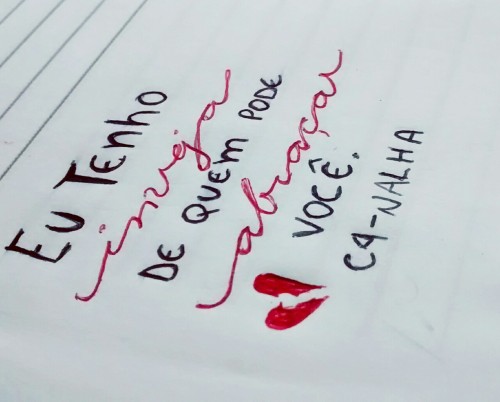 EU TEnho
inveja
DE QUEM PODE
abraçar
VOCÊ.
C4-NALHA